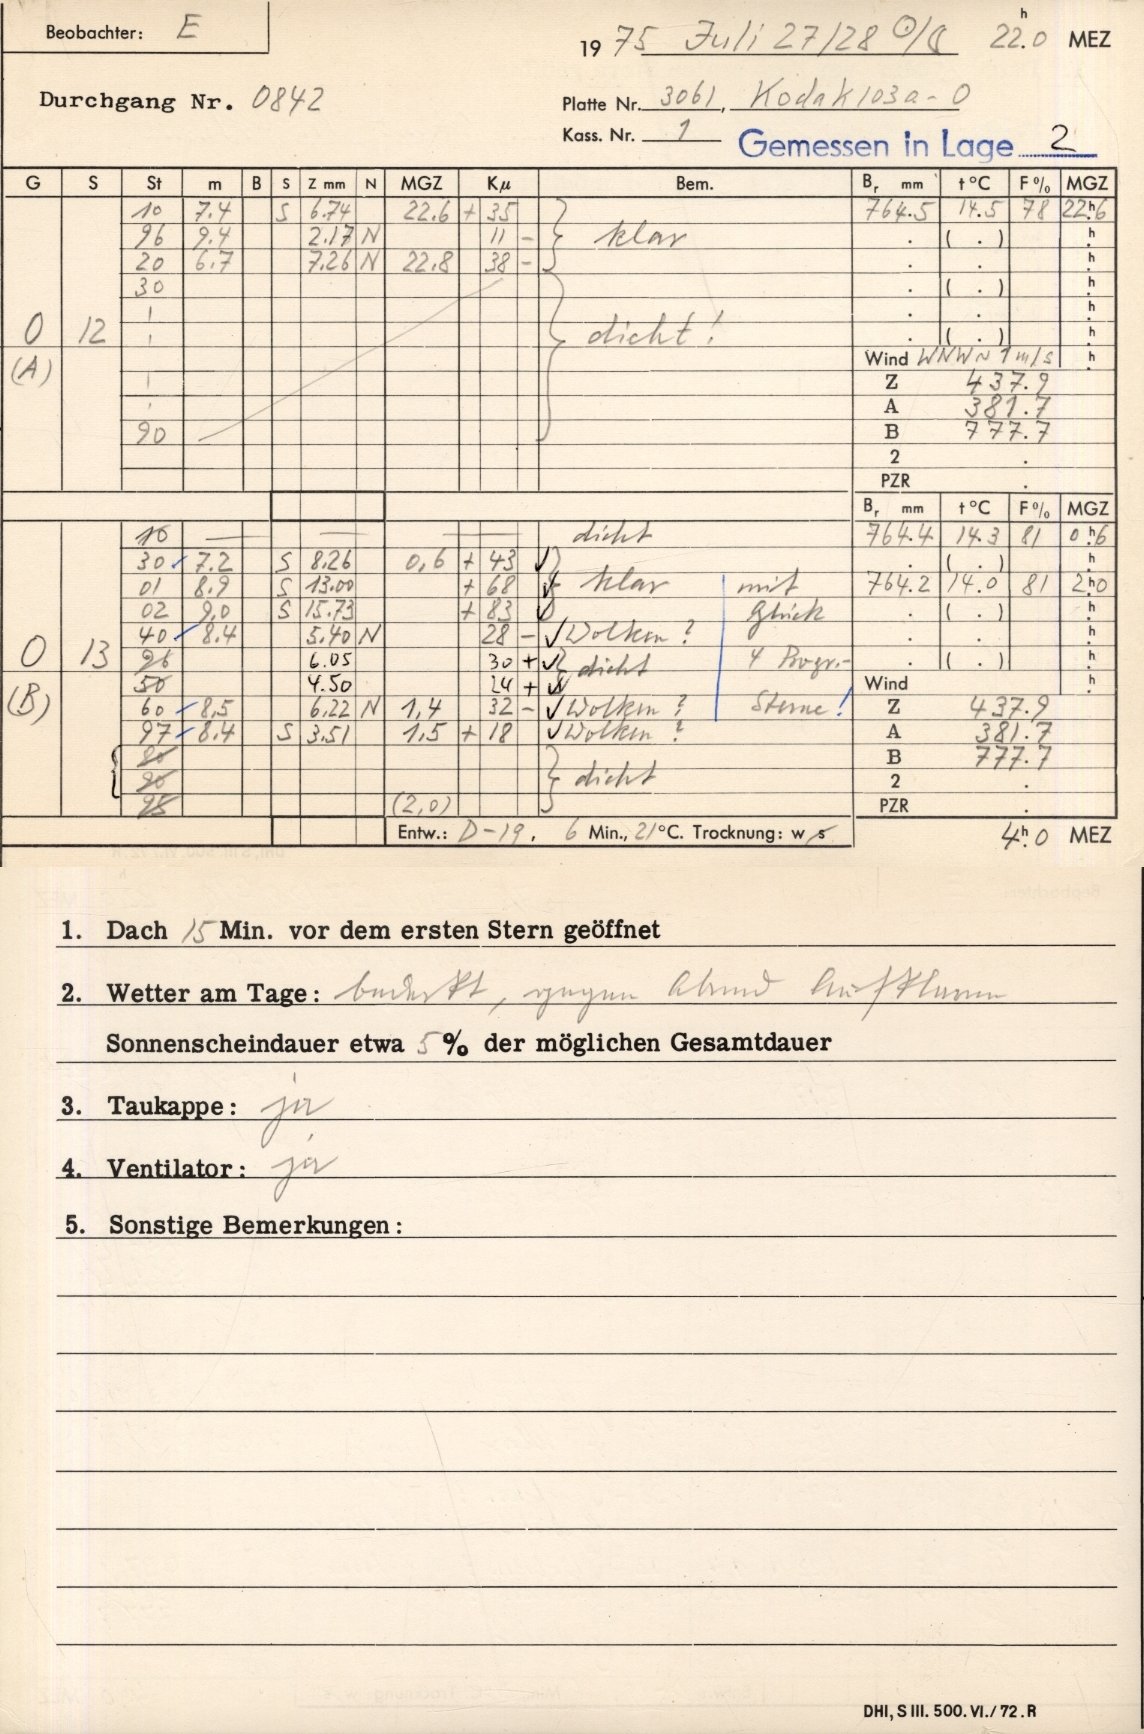 Beobachter: E
1975 Juli 27/28 ☉/☾ 22.0 h MEZ
Durchgang Nr. 0842
Platte Nr. 3061, Kodak 103a-O
Kass. Nr. 1 Gemessen in Lage 2
G S St m B S Z mm N MGZ Kμ Bem. Br mm t °C F % MGZ
10 7.4 S 6.74 22.6 + 35 764.5 14.5 78 22h.6
96 9.4 2.17 N 11 - klar . ( . ) h
20 6.7 7.26 N 22.8 38 - . . h
30 . ( . ) h
. . h
O 12 dicht! . ( . ) h
(A) Wind WNW~1m/s h
Z 437.9
A 381.7
90 B 777.7
2 .
PZR .
Br mm t °C F % MGZ
10 — — — — dicht 764.4 14.3 81 0h.6
30 7.2 S 8.26 0,6 + 43 ✓ . ( . ) h
01 8.9 S 13.00 + 68 ✓ klar mit 764.2 14.0 81 2h.0
02 9.0 S 15.73 + 83 ✓ Glück . ( . ) h
40 8.4 5.40 N 28 - ✓ Wolken? . . h
O 13 96 6.05 30 + ✓ dicht 4 Progr.- . ( . ) h
50 4.50 24 + ✓ Wind h
(B) 60 8,5 6.22 N 1,4 32 - ✓ Wolken? Sterne! Z 437.9
97 8.4 S 3.51 1,5 + 18 ✓ Wolken? A 381.7
80 B 777.7
90 dicht 2 .
98 (2,0) PZR .
Entw.: D-19. 6 Min., 21°C. Trocknung: w s 4h.0 MEZ
1. Dach 15 Min. vor dem ersten Stern geöffnet
2. Wetter am Tage: bedeckt, gegen Abend Aufklaren
Sonnenscheindauer etwa 5 % der möglichen Gesamtdauer
3. Taukappe: ja
4. Ventilator: ja
5. Sonstige Bemerkungen:
DHI, S III. 500. VI./72. R